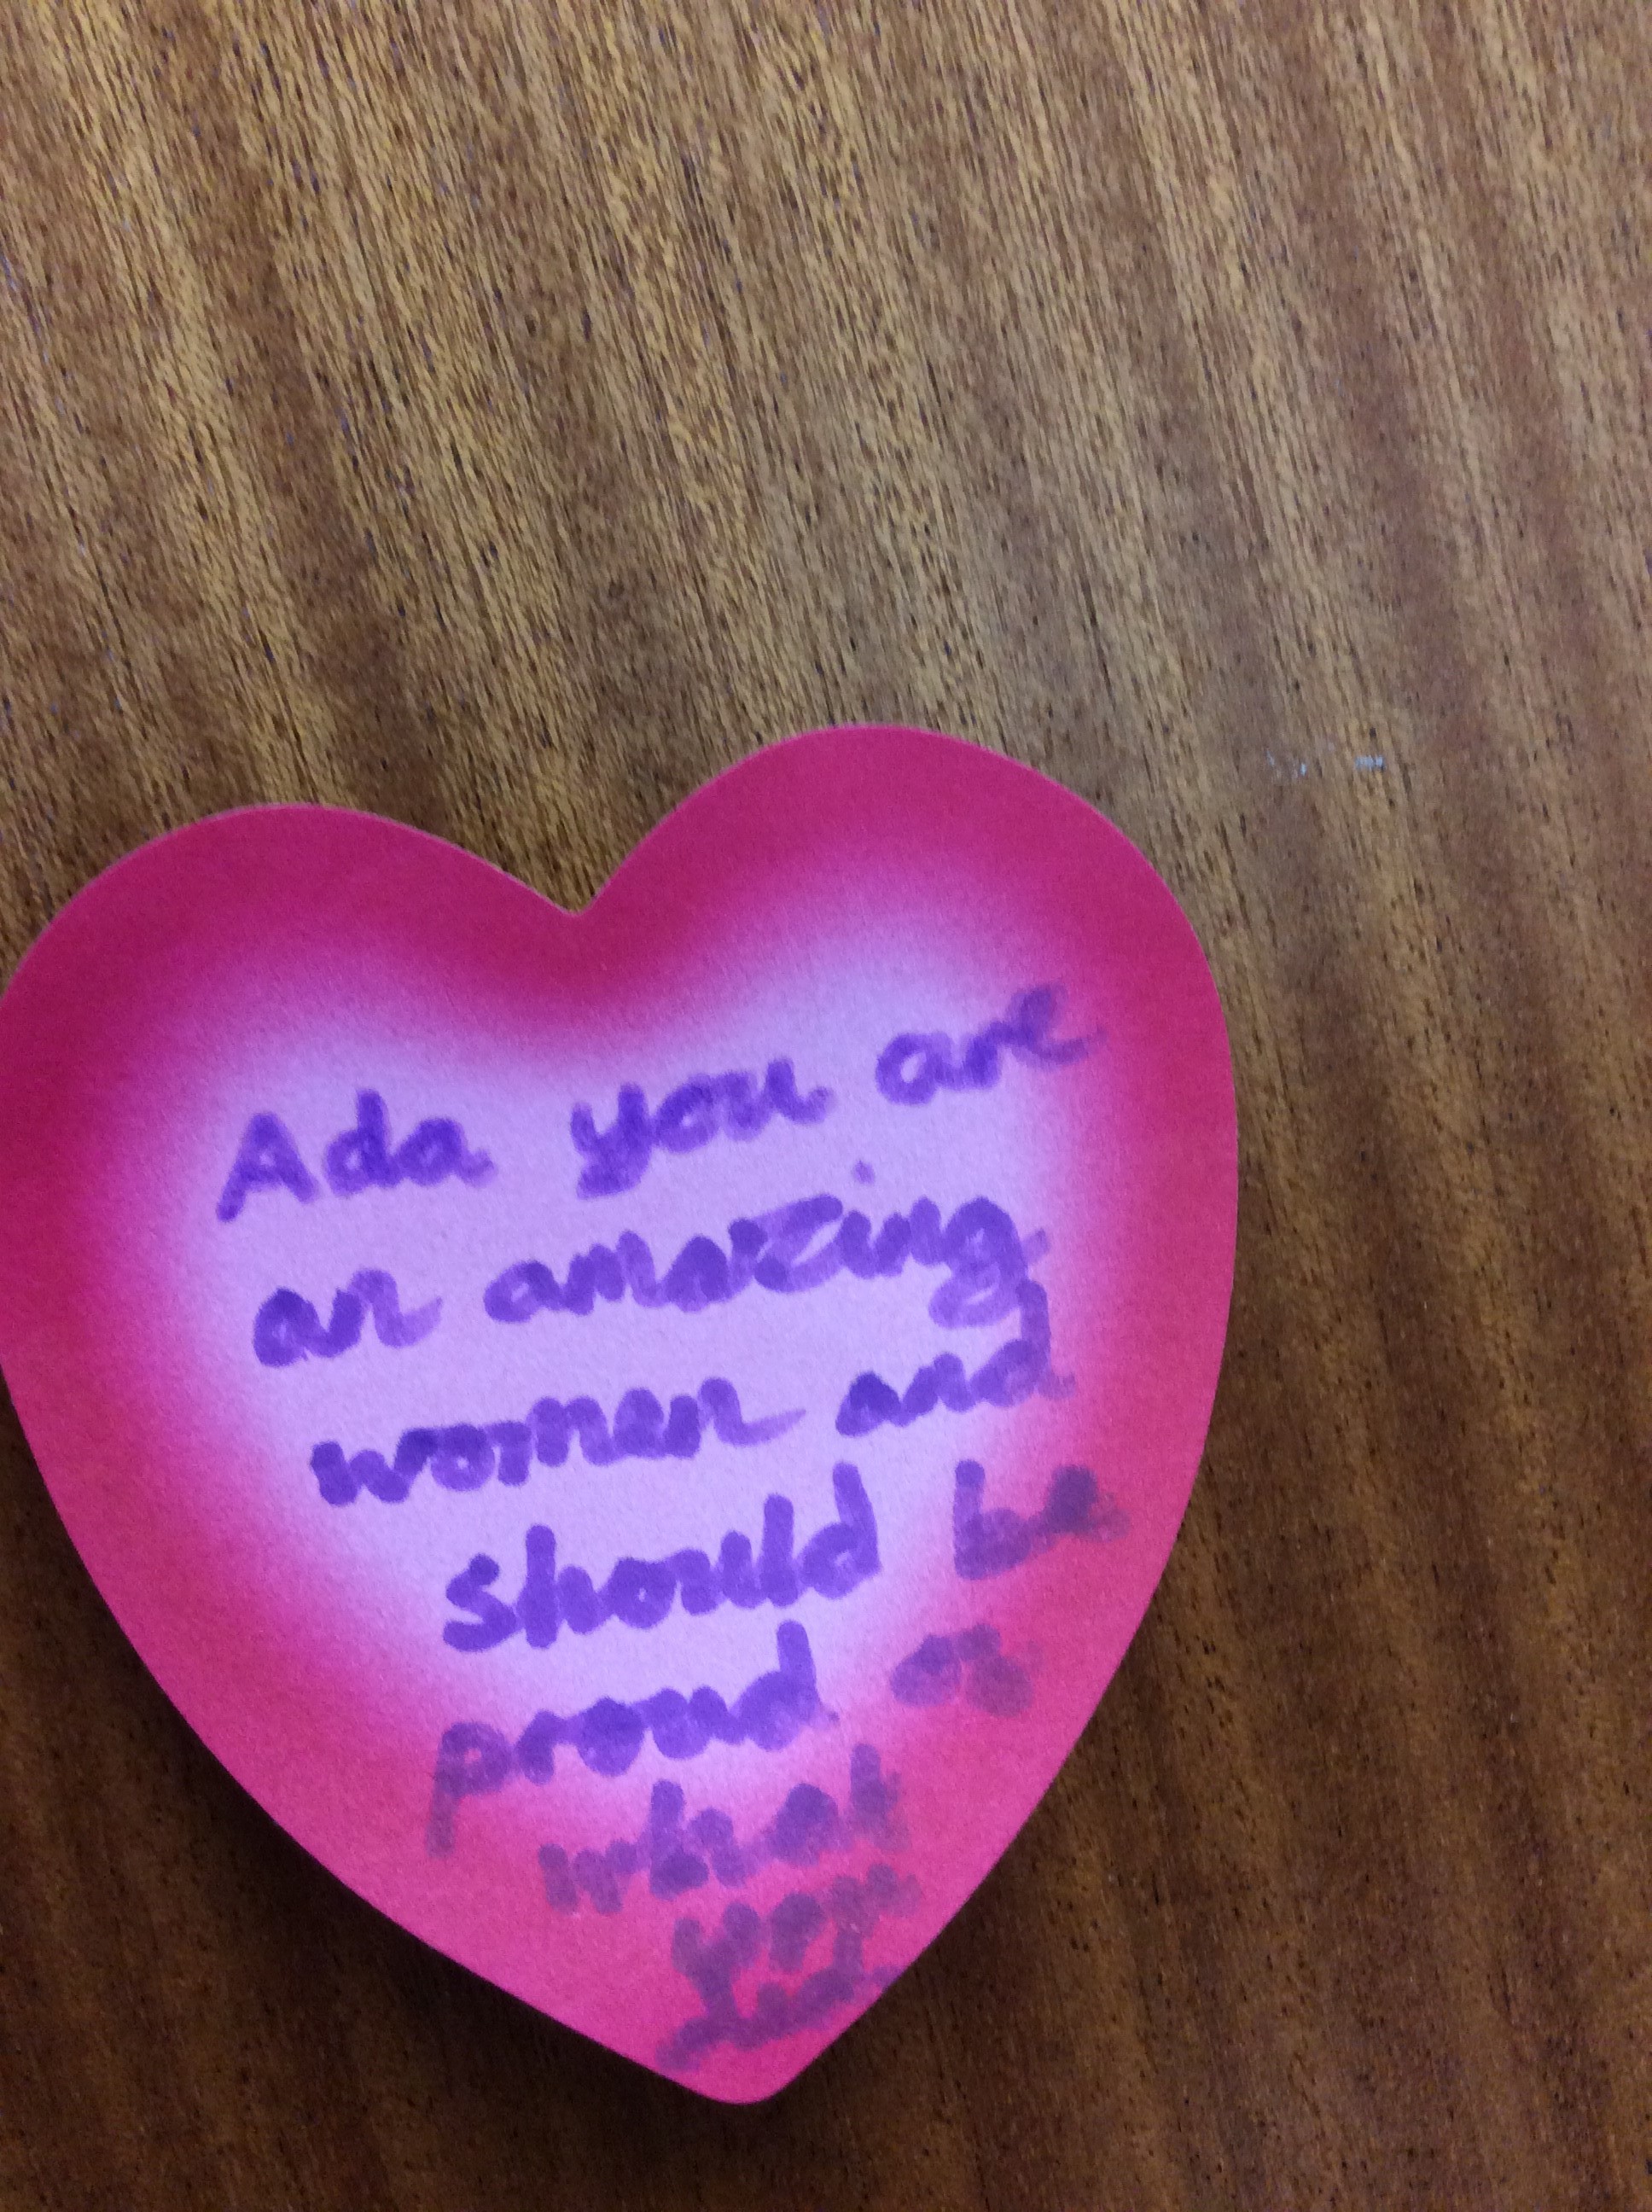 Ada you are
an amazing
women and
should be
proud of
what
you
did